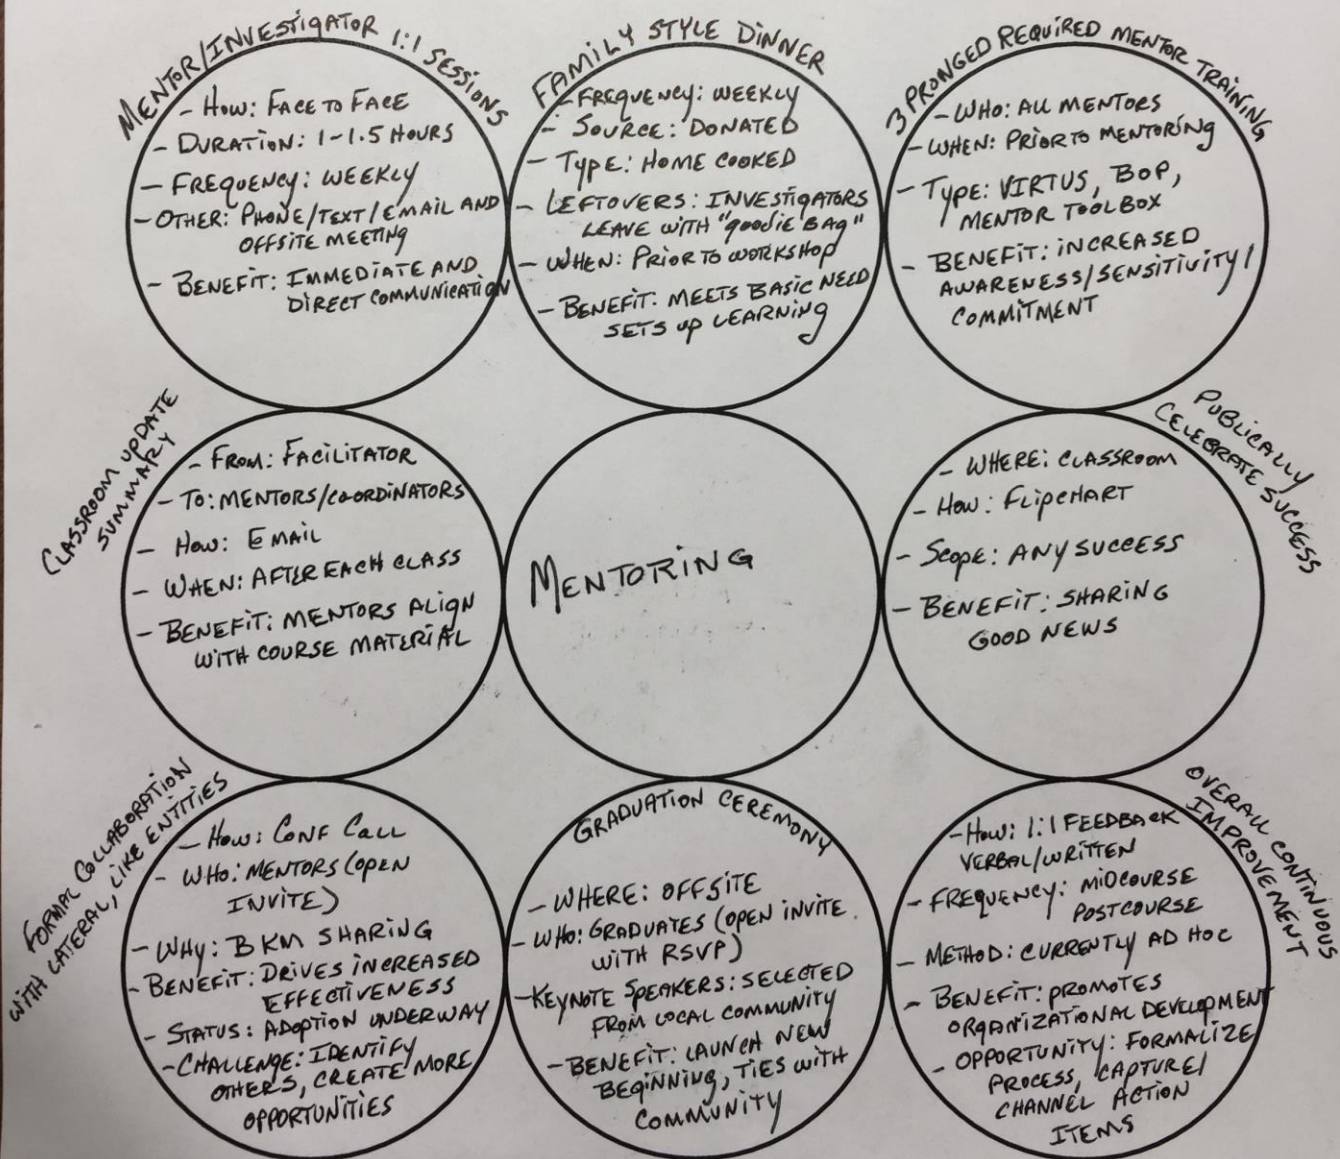 MENTOR/INVESTIGATOR 1:1 SESSIONS
- HOW: FACE TO FACE
- DURATION: 1-1.5 HOURS
- FREQUENCY: WEEKLY
- OTHER: PHONE/TEXT/EMAIL AND
OFFSITE MEETING
- BENEFIT: IMMEDIATE AND
DIRECT COMMUNICATION
FAMILY STYLE DINNER
- FREQUENCY: WEEKLY
- SOURCE: DONATED
- TYPE: HOME COOKED
- LEFTOVERS: INVESTIGATORS
LEAVE WITH "GOODIE BAG"
- WHEN: PRIOR TO WORKSHOP
- BENEFIT: MEETS BASIC NEED
SETS UP LEARNING
3 PRONGED REQUIRED MENTOR TRAINING
- WHO: ALL MENTORS
- WHEN: PRIOR TO MENTORING
- TYPE: VIRTUS, BOP,
MENTOR TOOLBOX
- BENEFIT: INCREASED
AWARENESS/SENSITIVITY/
COMMITMENT
CLASSROOM UPDATE
SUMMARY
- FROM: FACILITATOR
- TO: MENTORS/CO-ORDINATORS
- HOW: EMAIL
- WHEN: AFTER EACH CLASS
- BENEFIT: MENTORS ALIGN
WITH COURSE MATERIAL
MENTORING
PUBLICALLY
CELEBRATE SUCCESS
- WHERE: CLASSROOM
- HOW: FLIPCHART
- SCOPE: ANY SUCCESS
- BENEFIT: SHARING
GOOD NEWS
FORMAL COLLABORATION
WITH LATERAL, LIKE ENTITIES
- HOW: CONF CALL
- WHO: MENTORS (OPEN
INVITE)
- WHY: BKM SHARING
- BENEFIT: DRIVES INCREASED
EFFECTIVENESS
- STATUS: ADOPTION UNDERWAY
- CHALLENGE: IDENTIFY
OTHERS, CREATE MORE
OPPORTUNITIES
GRADUATION CEREMONY
- WHERE: OFFSITE
- WHO: GRADUATES (OPEN INVITE
WITH RSVP)
- KEYNOTE SPEAKERS: SELECTED
FROM LOCAL COMMUNITY
- BENEFIT: LAUNCH NEW
BEGINNING, TIES WITH
COMMUNITY
OVERALL CONTINUOUS
IMPROVEMENT
- HOW: 1:1 FEEDBACK
VERBAL/WRITTEN
- FREQUENCY: MIDCOURSE
POSTCOURSE
- METHOD: CURRENTLY AD HOC
- BENEFIT: PROMOTES
ORGANIZATIONAL DEVELOPMENT
- OPPORTUNITY: FORMALIZE
PROCESS, CAPTURE/
CHANNEL ACTION
ITEMS